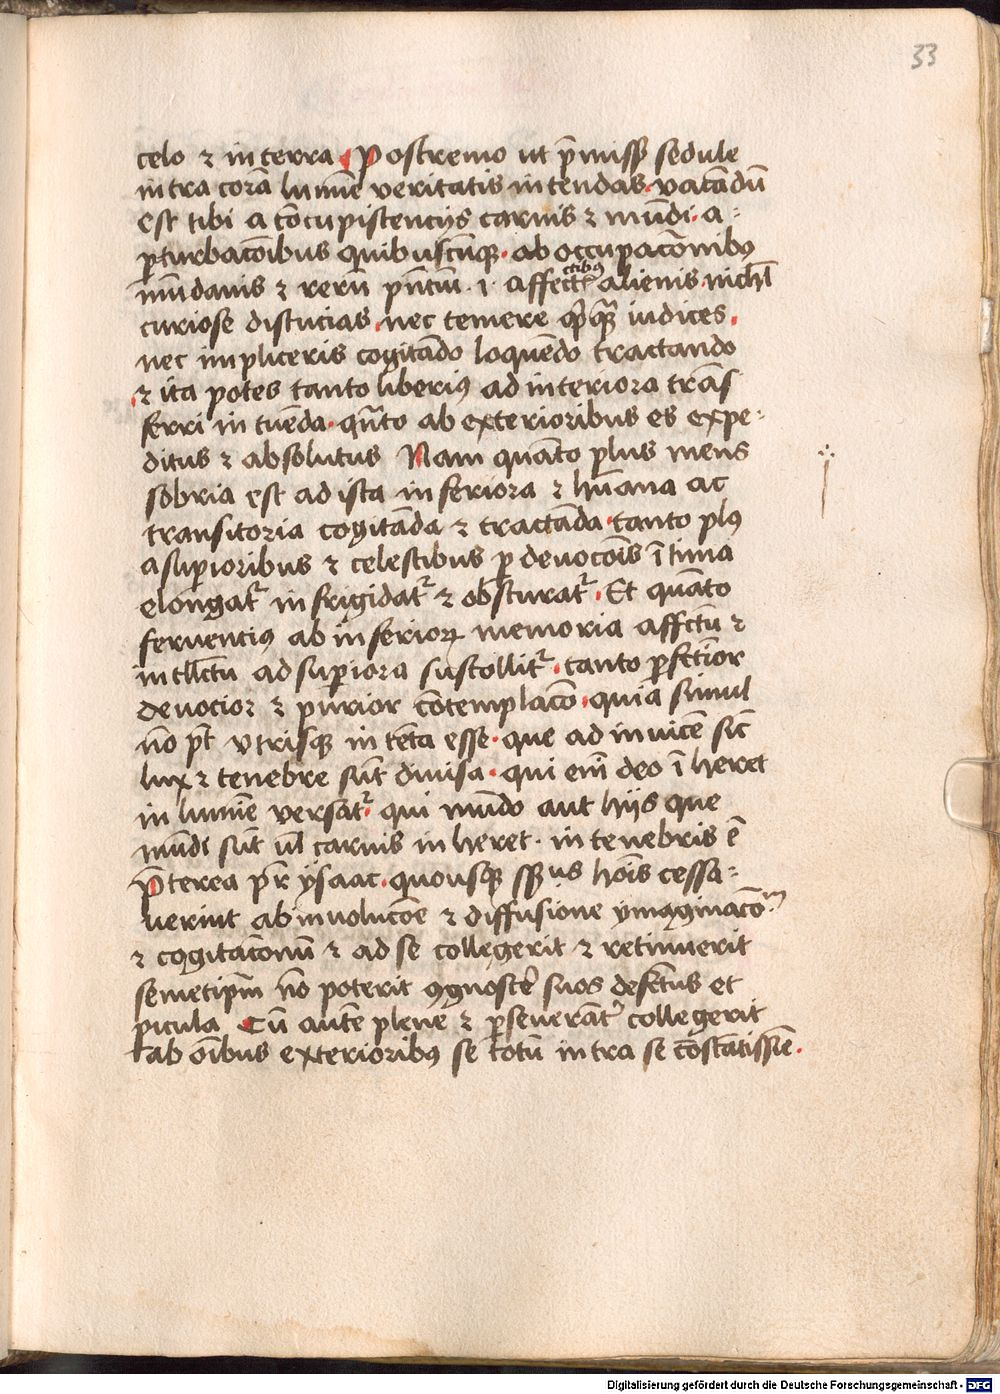 33
celo ⁊ in terra Postremo ut p̄missꝭ sedule
intra corā lumīe veritatis intendas. vacādū
est tibi a cōcupiscencijs carnis ⁊ mūdi. a-
ꝑturbacōibus quibuscūqꝫ. ab occupacōnibꝰ
mūdanis ⁊ rerū p̄nciū. i. affectibus alienis. nichil
curiose discucias, nec temere iudices.
nec impliceris cogitādo loquēdo tractando
⁊ ita potes tanto liberiꝰ ad interiora trās
ferri intuēda. qn̄to ab exterioribus es expe-
ditus ⁊ absolutus Nam quāto plus mens
sobria est ad ista inferiora ⁊ hūana ac
transitoria cogitāda ⁊ tractāda. tanto plꝰ
a suꝑioribus ⁊ celestibus ꝑ deuocōis ītima
elongatʳ infrigidatʳ ⁊ obscuratʳ. Et quāto
feruenciꝰ ab inferioꝝ memoria affc̄tu ⁊
intllc̄tu ad suꝑiora suscollitʳ. tanto ꝑfc̄cior
deuocior ⁊ purior cōtemplacō. quia simul
nō pt̄ vtrisqꝫ intēta esse. que ad inuicē sic̄
lux ⁊ tenebre sūt diuisa. qui em̄ deo īheret
in lumīe versatʳ. qui mūdo aut hijs que
mūdi sūt ul̄ carnis inheret. in tenebris ē
P̄terea pr̄ ysaac. quousqꝫ spūs hoīs cessa-
uerint ab inuolucōe ⁊ diffusione ymaginacōm
⁊ cogitacōnū ⁊ ad se collegerit ⁊ retinuerit
semetipm̄ nō poterit ꝯgnosce͛ suos defc̄tus et
ꝑicula Cū autē plene ⁊ ꝑseuerāt͛ collegerit
ab oībus exterioribꝰ se totū intra se cōstātissīe.
Digitalisierung gefördert durch die Deutsche Forschungsgemeinschaft - DFG